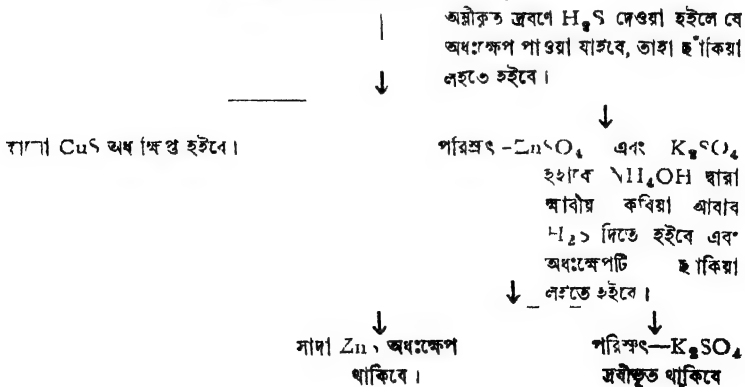 অম্লীকৃত দ্রবণে H₂S দেওয়া হইলে যে
অধঃক্ষেপ পাওয়া যাইবে, তাহা ছাঁকিয়া
লইতে হইবে।
কালো CuS অধঃক্ষিপ্ত হইবে।
পরিস্রুৎ-ZnSO₄ এবং K₂SO₄
ইহাকে NH₄OH দ্বারা
ক্ষারীয় করিয়া আবার
H₂S দিতে হইবে এবং
অধঃক্ষেপটি ছাঁকিয়া
লইতে হইবে।
সাদা ZnS অধঃক্ষেপ
থাকিবে।
পরিস্রুৎ—K₂SO₄
দ্রবীভূত থাকিবে